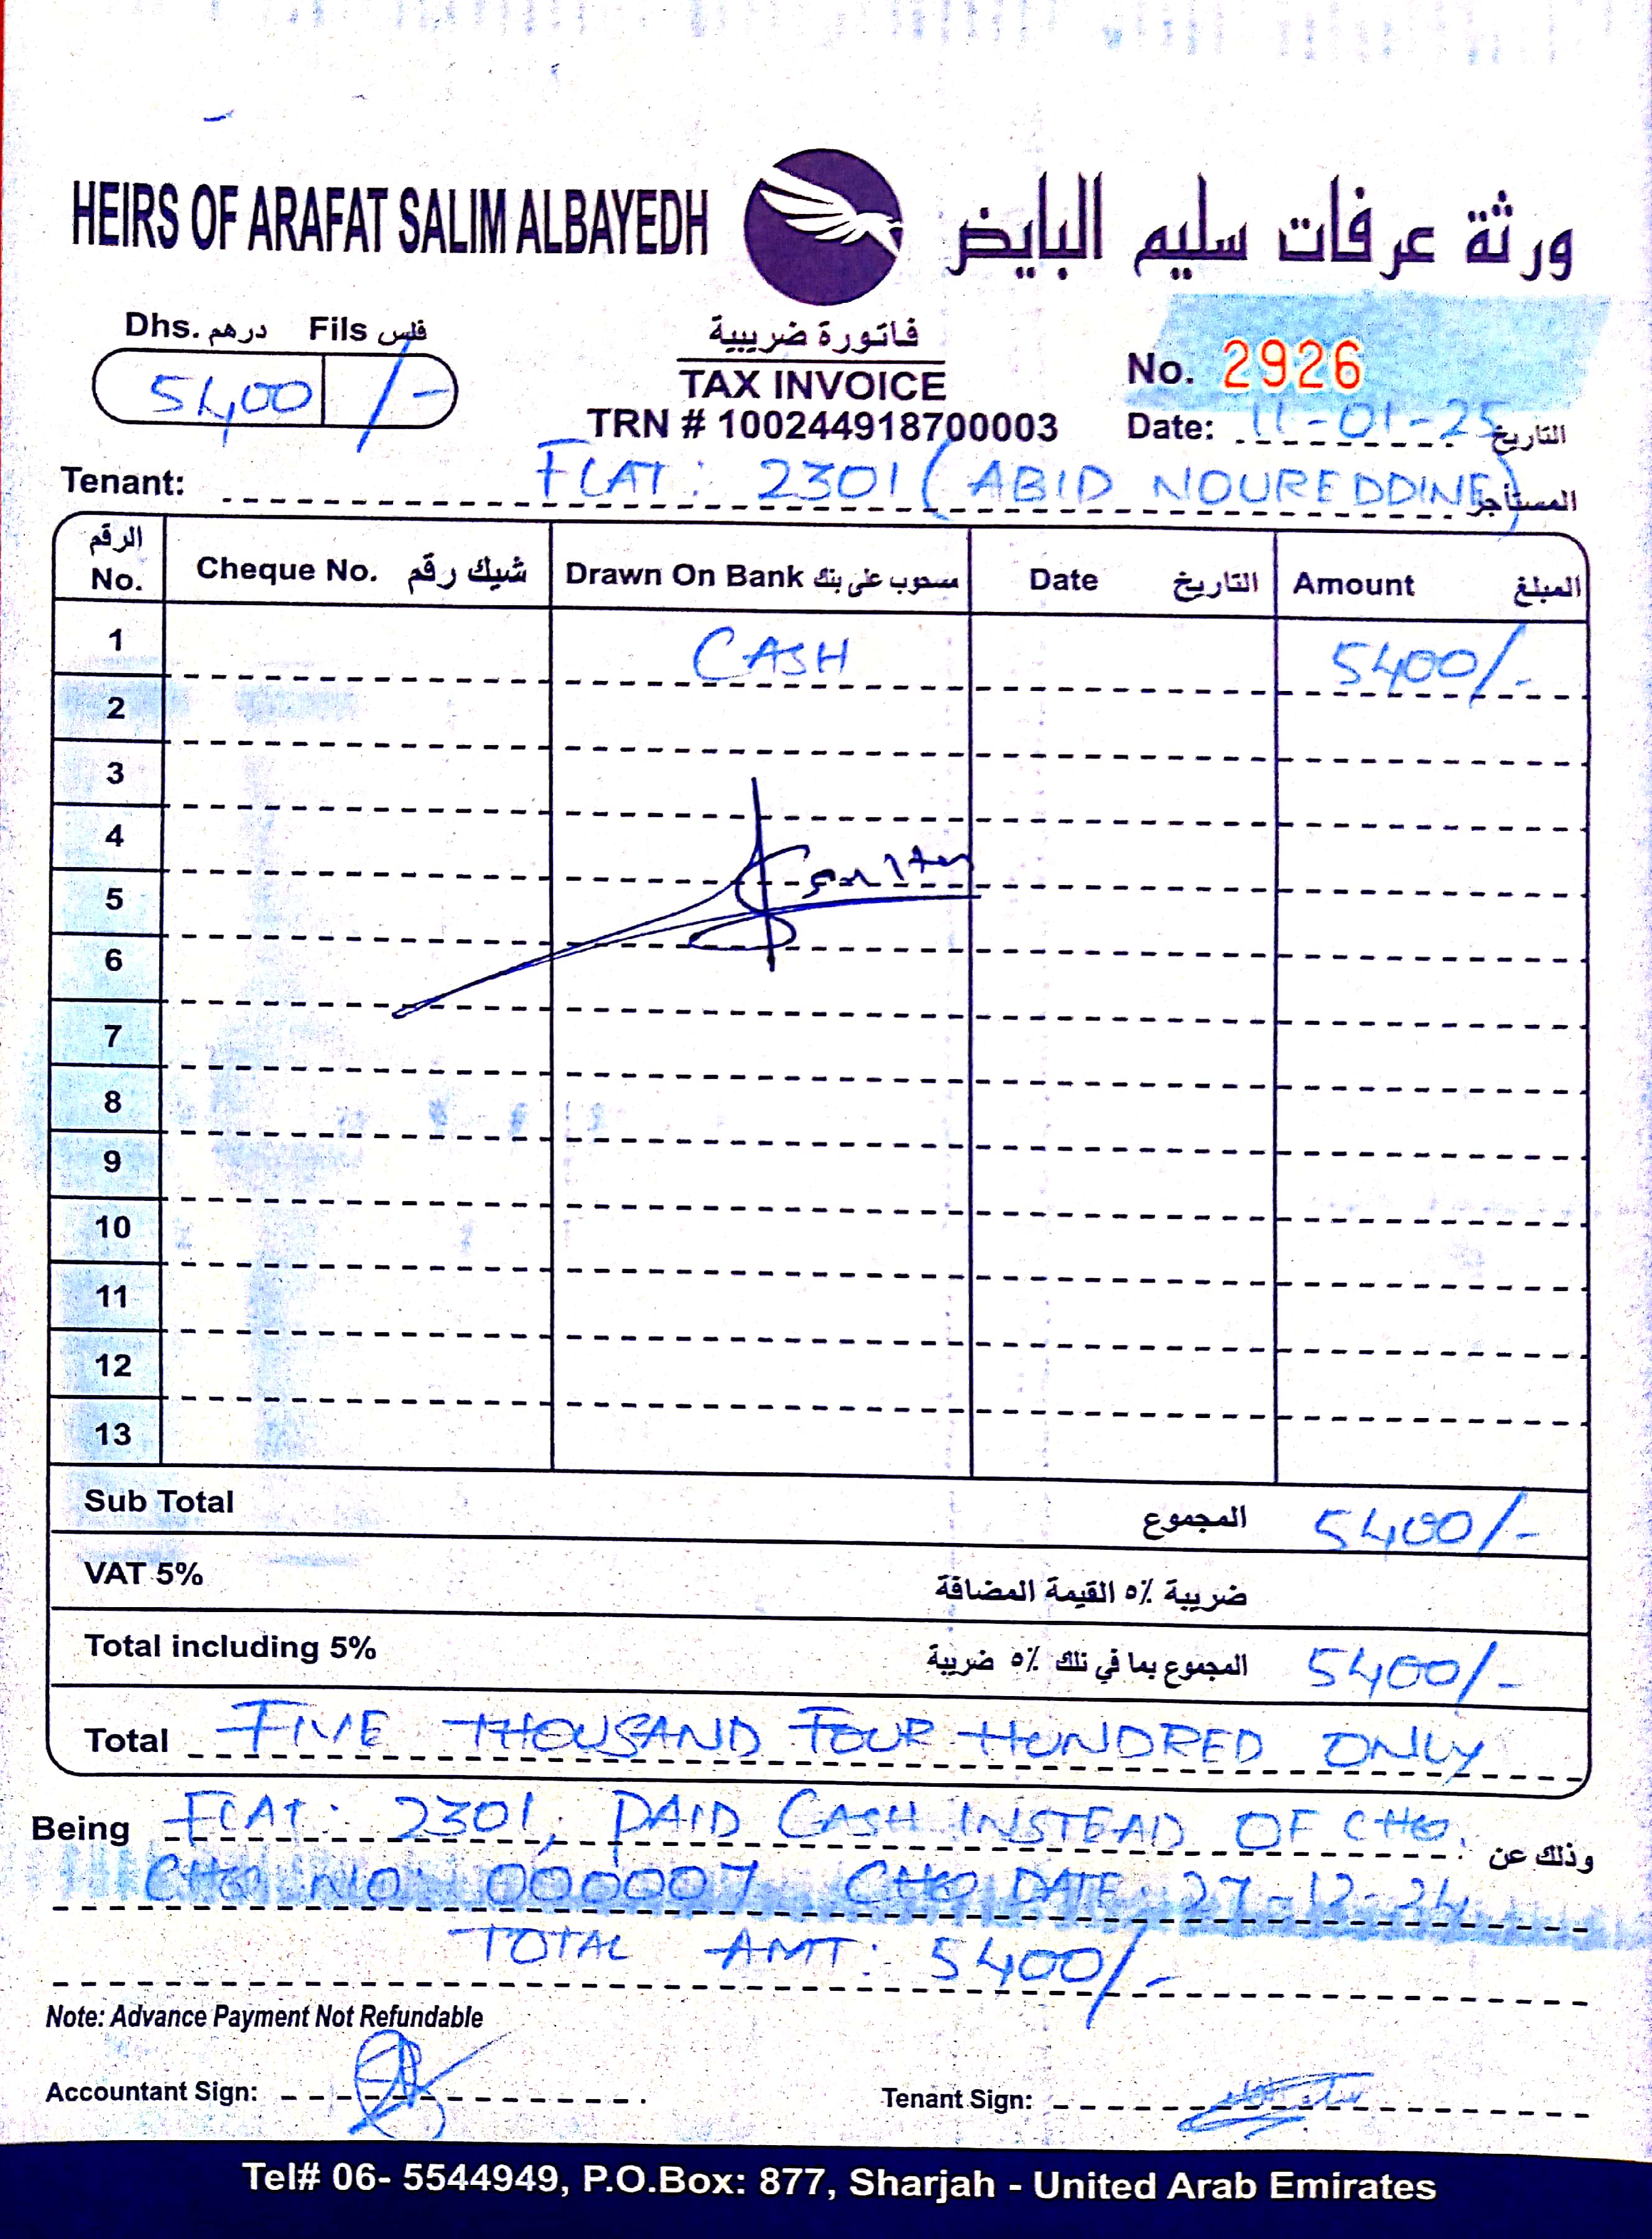 HEIRS OF ARAFAT SALIM ALBAYEDH ورثة عرفات سليم البايض
Dhs. درهم Fils فلس
5400 /-
فاتورة ضريبية
TAX INVOICE
TRN # 100244918700003
No. 2926
Date: 11-01-25 التاريخ
Tenant: FLAT: 2301 (ABID NOUREDDINE) المستأجر
الرقم No. Cheque No. شيك رقم Drawn On Bank مسحوب على بنك Date التاريخ Amount المبلغ
1 CASH 5400/-
2
3
4
5
6
7
8
9
10
11
12
13
Sub Total المجموع 5400/-
VAT 5% ضريبة ٥٪ القيمة المضافة
Total including 5% المجموع بما في ذلك ٥٪ ضريبة 5400/-
Total FIVE THOUSAND FOUR HUNDRED ONLY
Being FLAT: 2301, PAID CASH INSTEAD OF CHQ. وذلك عن
CHQ NO: 000007 CHQ DATE: 27-12-24
TOTAL AMT: 5400/-
Note: Advance Payment Not Refundable
Accountant Sign:
Tenant Sign:
Tel# 06- 5544949, P.O.Box: 877, Sharjah - United Arab Emirates